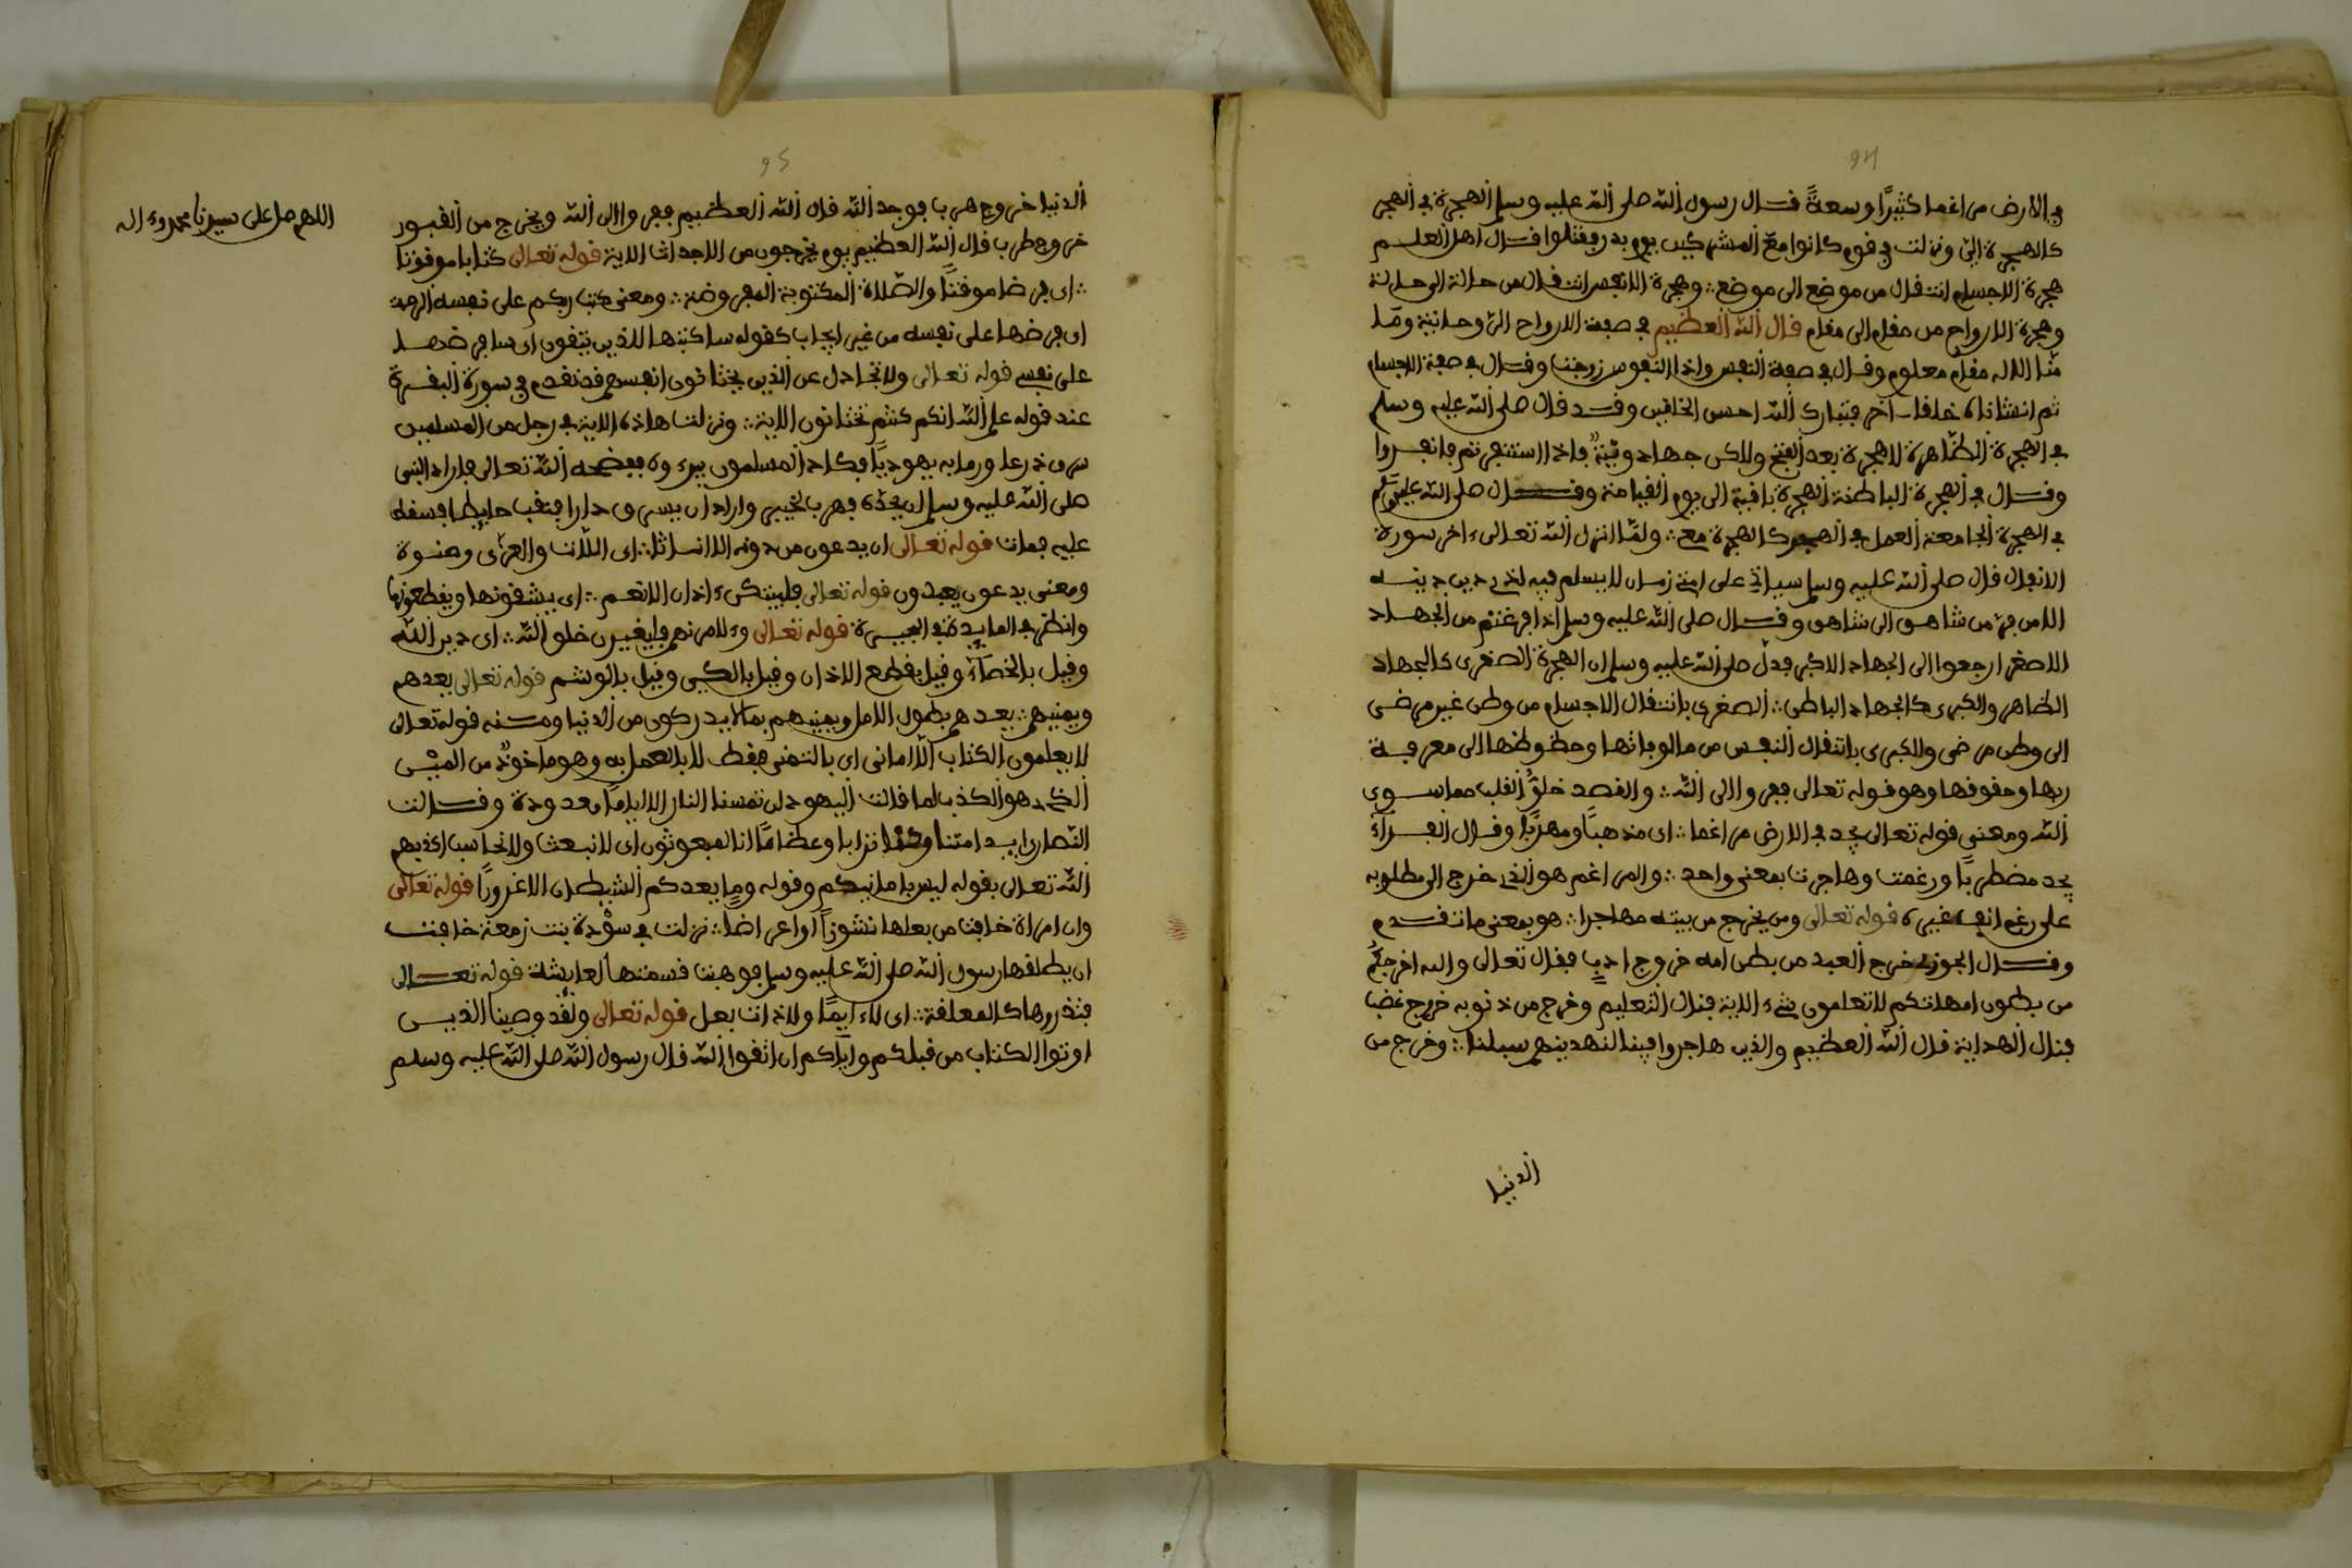 94
في الارض مراغما كثيرًا وسعةً قال رسول الله صلى الله عليه وسلم الهجرة في الهجر
كالهجرة اليّ ونزلت في قوم كانوا مع المشركين يوم بدر فقتلوا قال اهل العلم
هجرة الاجسام انتقال من موضع الى موضع وهجرة الانفس انتقال من حالة الى حالة
وهجرة الارواح من مقام الى مقام قال الله العظيم في صفة الارواح الروحانية وما
منا الا له مقام معلوم وقال في صفة النفس واذا النفوس زوجت وقال في صفة الاجسام
ثم انشاناه خلقا اخر فتبارك الله احسن الخالقين وقد قال صلى الله عليه وسلم
في الهجرة الظاهرة لا هجرة بعد الفتح ولاكن جهاد ونيةٌ فاذا استنفرتم فانفروا
وقال في الهجرة الباطنة الهجرة باقية الى يوم القيامة وقال صلى الله عليه وسلم
في الهجرة الجامعة العمل في الهجر كالهجرة مع ولمّا انزل الله تعالى ءاخر سورة
الانفال قال صلى الله عليه وسلم سياتي على امتي زمان لا يسلم فيه لذي دين دينه
الا من فرّ من شاهق الى شاهق وقال صلى الله عليه وسلم اذا فرغتم من الجهاد
الاصغر ارجعوا الى الجهاد الاكبر فدلّ صلى الله عليه وسلم ان الهجرة الصغرى كالجهاد
الظاهر والكبرى كالجهاد الباطن الصغرى بانتقال الاجسام من وطن غير مرضى
الى وطن مرضى والكبرى بانتقال النفس من مالوفاتها وحظوظها الى معرفة
ربها وحقوقها وهو قوله تعالى ففروا الى الله والقصد خلوُّ القلب مما سوى
الله ومعنى قوله تعالى يجد في الارض مراغما اى مذهبًا ومهربًا وقال الفراء
يجد مضطربًا ورغمت وهاجرت بمعنى واحد والمراغم هو الذى خرج الى مطلوبه
على رغم انف غيره قوله تعالى ومن يخرج من بيته مهاجرا هو بمعنى ما تقدم
وقال الجوزى خرج العبد من بطن امه خروج ادبٍ فقال تعالى والله اخرجكم
من بطون امهاتكم لا تعلمون شيء الاية فنال التعليم وخرج من ذنوبه خروج غضبا
فنال الهداية قال الله العظيم والذين هاجروا فينا لنهدينهم سبلنا وخرج من
الدنيا
95
الدنيا خروج هربا فوجد الله قال الله العظيم ففروا الى الله ويخرج من القبور
خروج طربا قال الله العظيم يوم يخرجون من الاجداث الاية قوله تعالى كتابا موقوتا
اى فرضا موقتًا والصلاة المكتوبة المفروضة ومعنى كتب ربكم على نفسه الرحمة
اى فرضها على نفسه من غير ايجاب كقوله ساكتبها للذين يتقون اى سافرضها
على نفسي قوله تعالى ولا تجادل عن الذين يختانون انفسهم قد تقدم في سورة البقرة
عند قوله علم الله انكم كنتم تختانون الاية ونزلت هاذه الاية في رجل من المسلمين
سرق درعا ورما به يهوديًا فكاد المسلمون يبرءوه ففضحه الله تعالى فاراد النبى
صلى الله عليه وسلم ان يحدّه فهرب لخيبر واراد ان يسرق دارا فنقب حايطا فسقط
عليه فمات قوله تعالى ان يدعون من دونه الا اناثا اى اللات والعزّى ومنوة
ومعنى يدعون يعبدون قوله تعالى فليبتكن ءاذان الانعم اى يشقونها ويقطعونها
وانظر في المايدة في البحيرة قوله تعالى وءلامرنهم فليغيرن خلق الله اى دين الله
وقيل بالخصاء وقيل بقطع الاذان وقيل بالكيى وقيل بالوشم قوله تعالى يعدهم
ويمنيهم يعدهم بطول الامل ويمنيهم بما لا يدركون من الدنيا ومنه قوله تعالى
لا يعلمون الكتاب الا امانى اى بالتمنى فقط لا بالعمل به وهو ماخوذٌ من الميْن
الذى هو الكذب لما قالت اليهود لن تمسنا النار الا اياما معدودة وقالت
النصارى ايذا متنا وكنا ترابا وعظامًا انا لمبعوثون اى لا نبعث ولا نحاسب اكذبهم
الله تعالى بقوله ليس بامانيكم وقوله وما يعدكم الشيطان الا غرورًا قوله تعالى
وان امراة خافت من بعلها نشوزًا او اعراضا نزلت في سوْدة بنت زمعة خافت
ان يطلقها رسول الله صلى الله عليه وسلم فوهبت قسمتها لعايشة قوله تعالى
فتذروها كالمعلقة اى لاء ايمًا ولا ذات بعل قوله تعالى ولقد وصينا الذين
اوتوا الكتاب من قبلكم واياكم ان اتقوا الله قال رسول الله صلى الله عليه وسلم
اللهم صل على سيدنا محمد وءاله